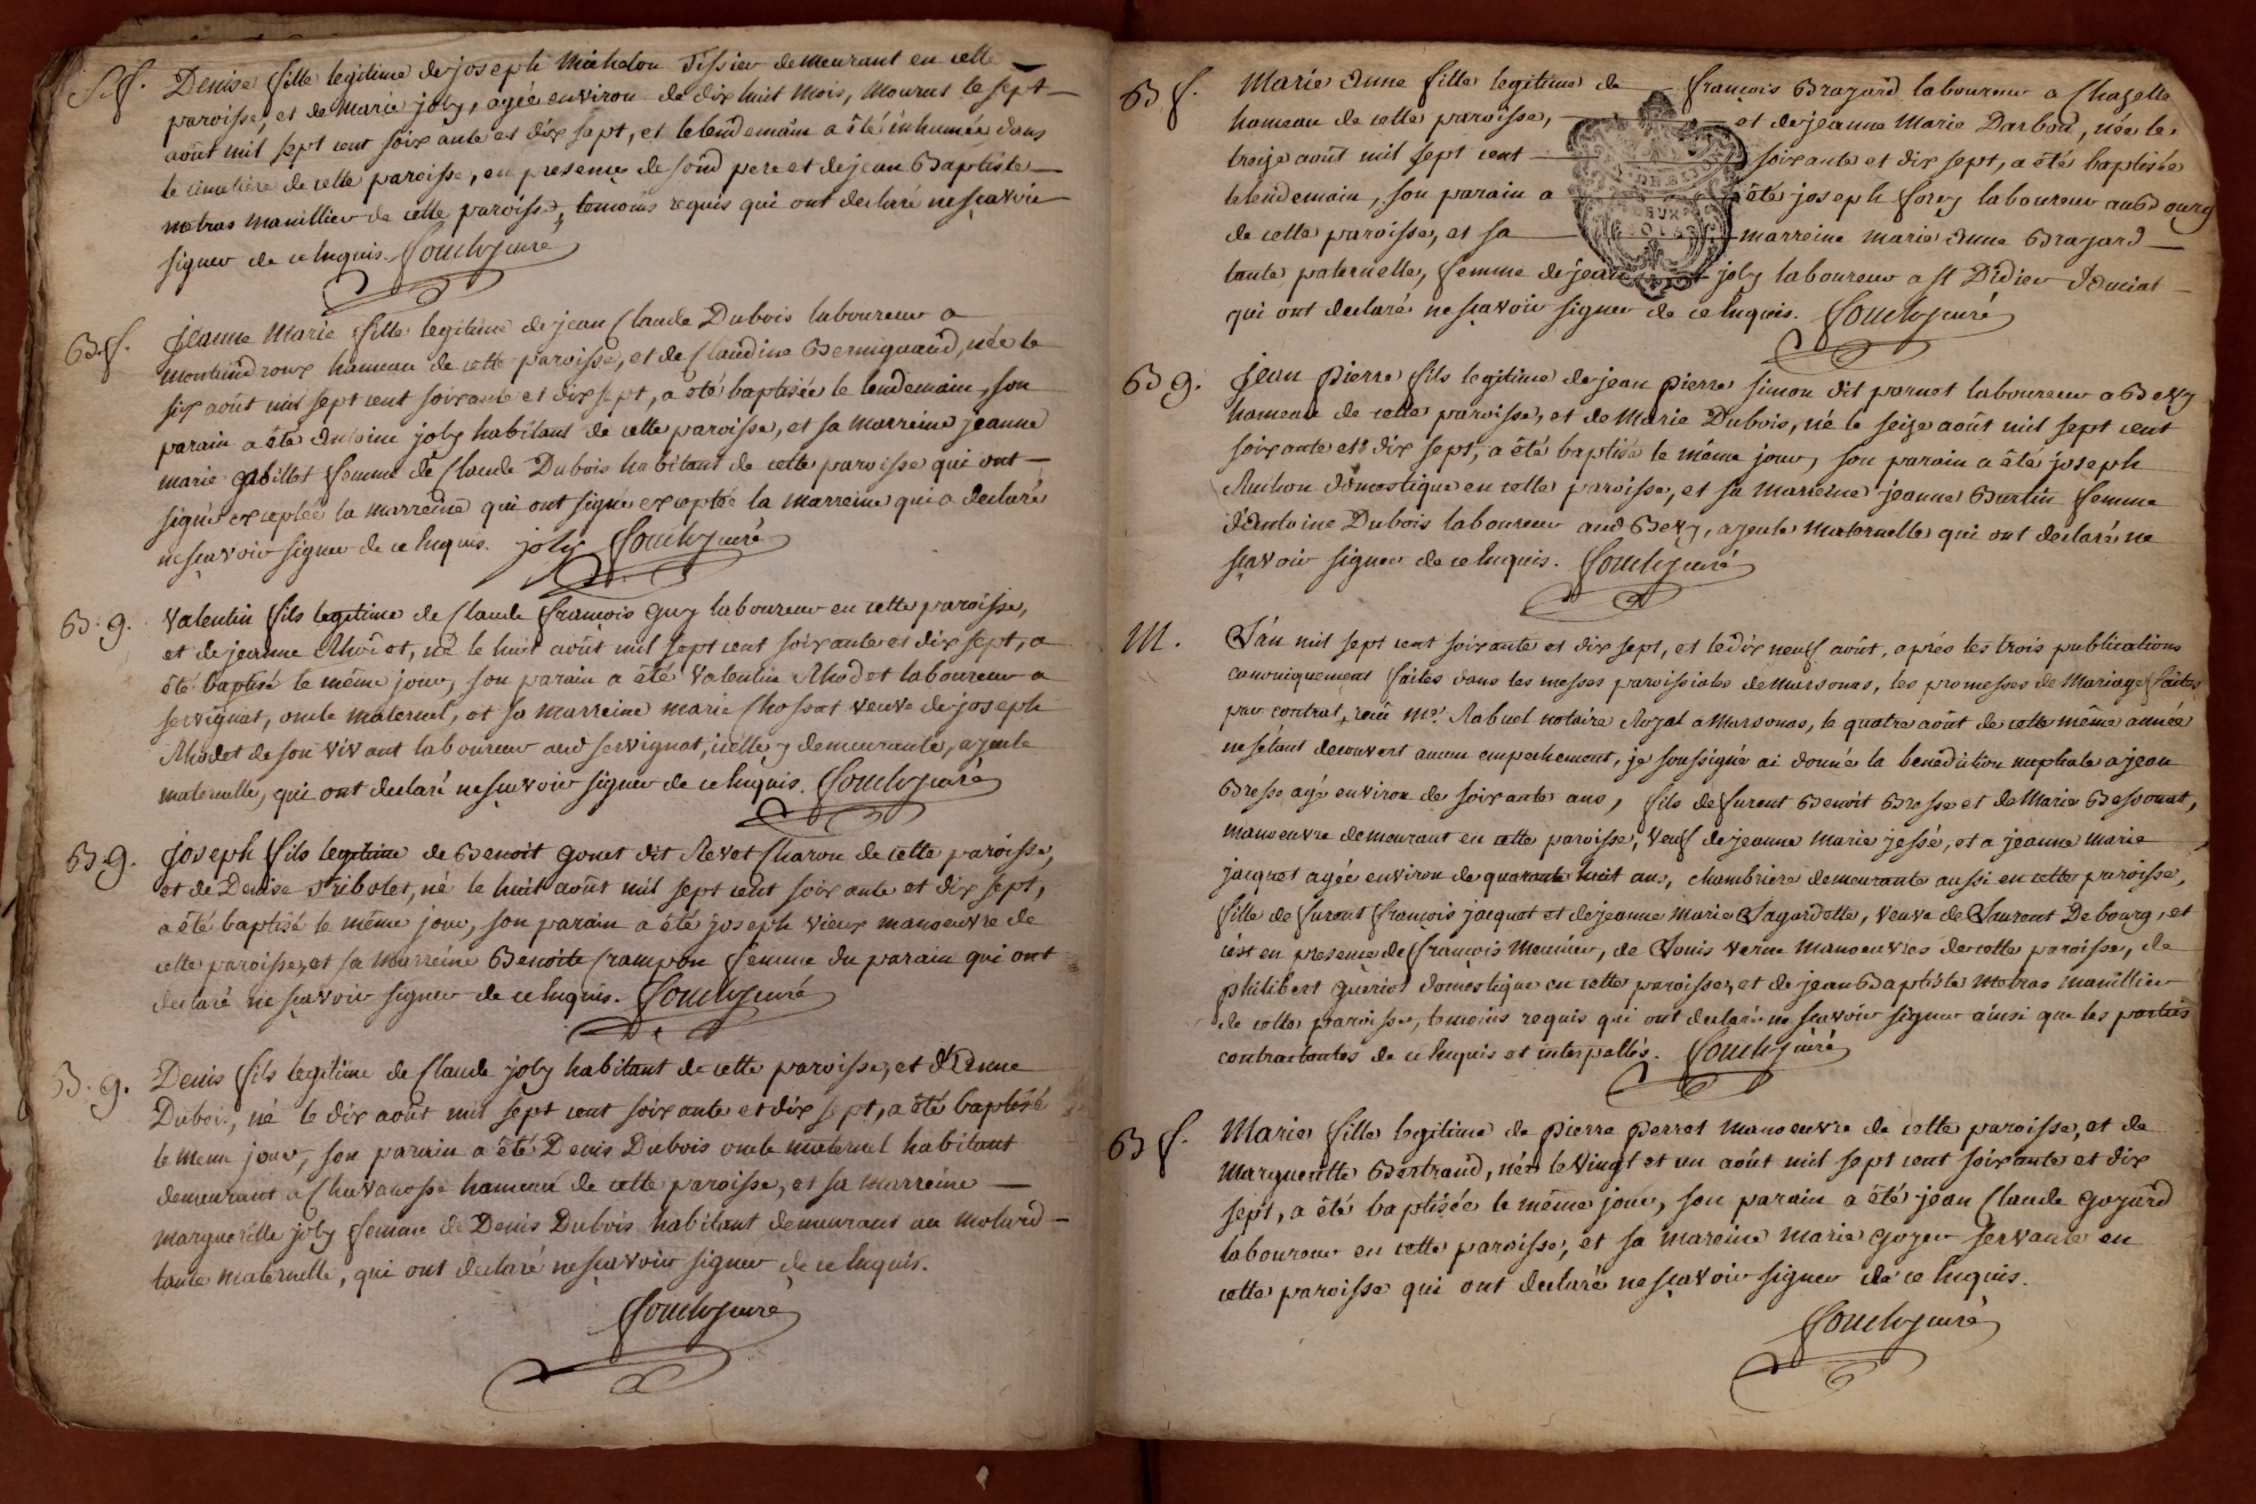 S. f. Denise fille legitime de joseph Michelon Tissier demeurant en cette
paroisse, et de Marie joly, agée environ de dix huit mois, mourut le sept
août mil sept cent soixante et dix sept, et le lendemain a été inhumée dans
le cimetière de cette paroisse, en presence de sond pere et de jean Baptiste
metras manillier de cette paroisse, temoins requis qui ont declaré ne sçavoir
signer de ce Enquis. curé
B. f. Jeanne Marie fille legitime de jean Claude Dubois laboureur a
hameau de cette paroisse, et de Claudine Berniguaud, née le
six août mil sept cent soixante et dix sept, a été baptisée le lendemain, son
parain a été Antoine joly habitant de cette paroisse, et sa marreine jeanne
marie gabillet femme de Claude Dubois habitant de cette paroisse qui ont
signé exceptée la marreine qui ont signé exceptée la marreine qui a declaré
ne sçavoir signer de ce Enquis. joly curé
B. g. Valentin fils legitime de Claude françois guy laboureur en cette paroisse,
et de jeanne Rhodet, né le huit août mil sept cent soixante et dix sept, a
été baptisé le même jour, son parain a été Valentin Rhodet laboureur a
servignat, oncle maternel, et sa marreine marie Chossat veuve de joseph
Rhodet de son vivant laboureur aud servignat, icelle y demeurante, ayeule
maternelle, qui ont declaré ne sçavoir signer de ce Enquis. curé
B. g. Joseph fils legitime de Benoit gonet dit Revet Charon de cette paroisse,
et de Denise Tribolet, né le huit août mil sept cent soixante et dix sept,
a été baptisé le même jour, son parain a été joseph vieux manoeuvre de
cette paroisse, et sa Marreine Benoite Crampon femme du parain qui ont
declaré ne sçavoir signer de ce Enquis. curé
B. g. Denis fils legitime de Claude joly habitant de cette paroisse, et d'Anne
Dubois, né le dix août mil sept cent soixante et dix sept, a été baptisé
le meme jour, son parain a été Denis Dubois oncle maternel habitant
demeurant a Chavanosse hameau de cette paroisse, et sa marreine
margueritte joly femme de Denis Dubois habitant demeurant au Molard
tante maternelle, qui ont declaré ne sçavoir signer de ce Enquis.
curé
B f. Marie Anne fille legitime de françois Brazard laboureur a Chazelle
hameau de cette paroisse, et de jeanne Marie Darbon, née le
treize août mil sept cent soixante et dix sept, a été baptisée
le lendemain, son parain a été joseph forey laboureur au Bourg
de cette paroisse, et sa marreine marie Anne Brazard
tante paternelle, femme de jean joly laboureur a st Didier d'aussiat
qui ont declaré ne sçavoir signer de ce Enquis. curé
B g. Jean pierre fils legitime de jean pierre simon dit parnet laboureur a Bevy
hameau de cette paroisse, et de Marie Dubois, né le seize août mil sept cent
soixante et dix sept, a été baptisé le même jour, son parain a été joseph
domestique en cette paroisse, et sa marreine jeanne Burtin femme
d'Antoine Dubois laboureur aud Bevy, ayeule maternelle qui ont declaré ne
sçavoir signer de ce Enquis. curé
M. L'an mil sept cent soixante et dix sept, et le dix neuf août, aprés les trois publications
canoniquement faites dans les messes paroissiales de Marsonas, les promesses de Mariage faites
par contrat, reçu Me. Rabuel notaire Royal a Marsonas, le quatre août de cette même année
ne s'étant decouvert aucun empechement, je soussigné ai donné la benediction nuptiale a jean
Bresse agé environ de soixante ans, fils de furent Benoit Bresse et de Marie Bessonat,
manoeuvre demeurant en cette paroisse, veuf de jeanne marie jessé, et a jeanne marie
jacquet agée environ de quarante huit ans, chambriere demeurante aussi en cette paroisse,
fille de furent françois jacquet et de jeanne Marie Lagardette, veuve de Laurent Debourg, et
c'est en presence de françois Meunier, de Louis verne manoeuvres de cette paroisse, de
philibert gueriot domestique en cette paroisse, et de jean Baptiste Metras manillier
de cette paroisse, temoins requis qui ont declaré ne sçavoir signer ainsi que les parties
contractantes de ce Enquis et interpellés. curé
B f. Marie fille legitime de pierre perret manoeuvre de cette paroisse, et de
margueritte Bertrand, née le vingt et un août mil sept cent soixante et dix
sept, a été baptisée le même jour, son parain a été jean Claude gozard
laboureur en cette paroisse, et sa mareine marie goyer servante en
cette paroisse qui ont declaré ne sçavoir signer de ce Enquis.
curé